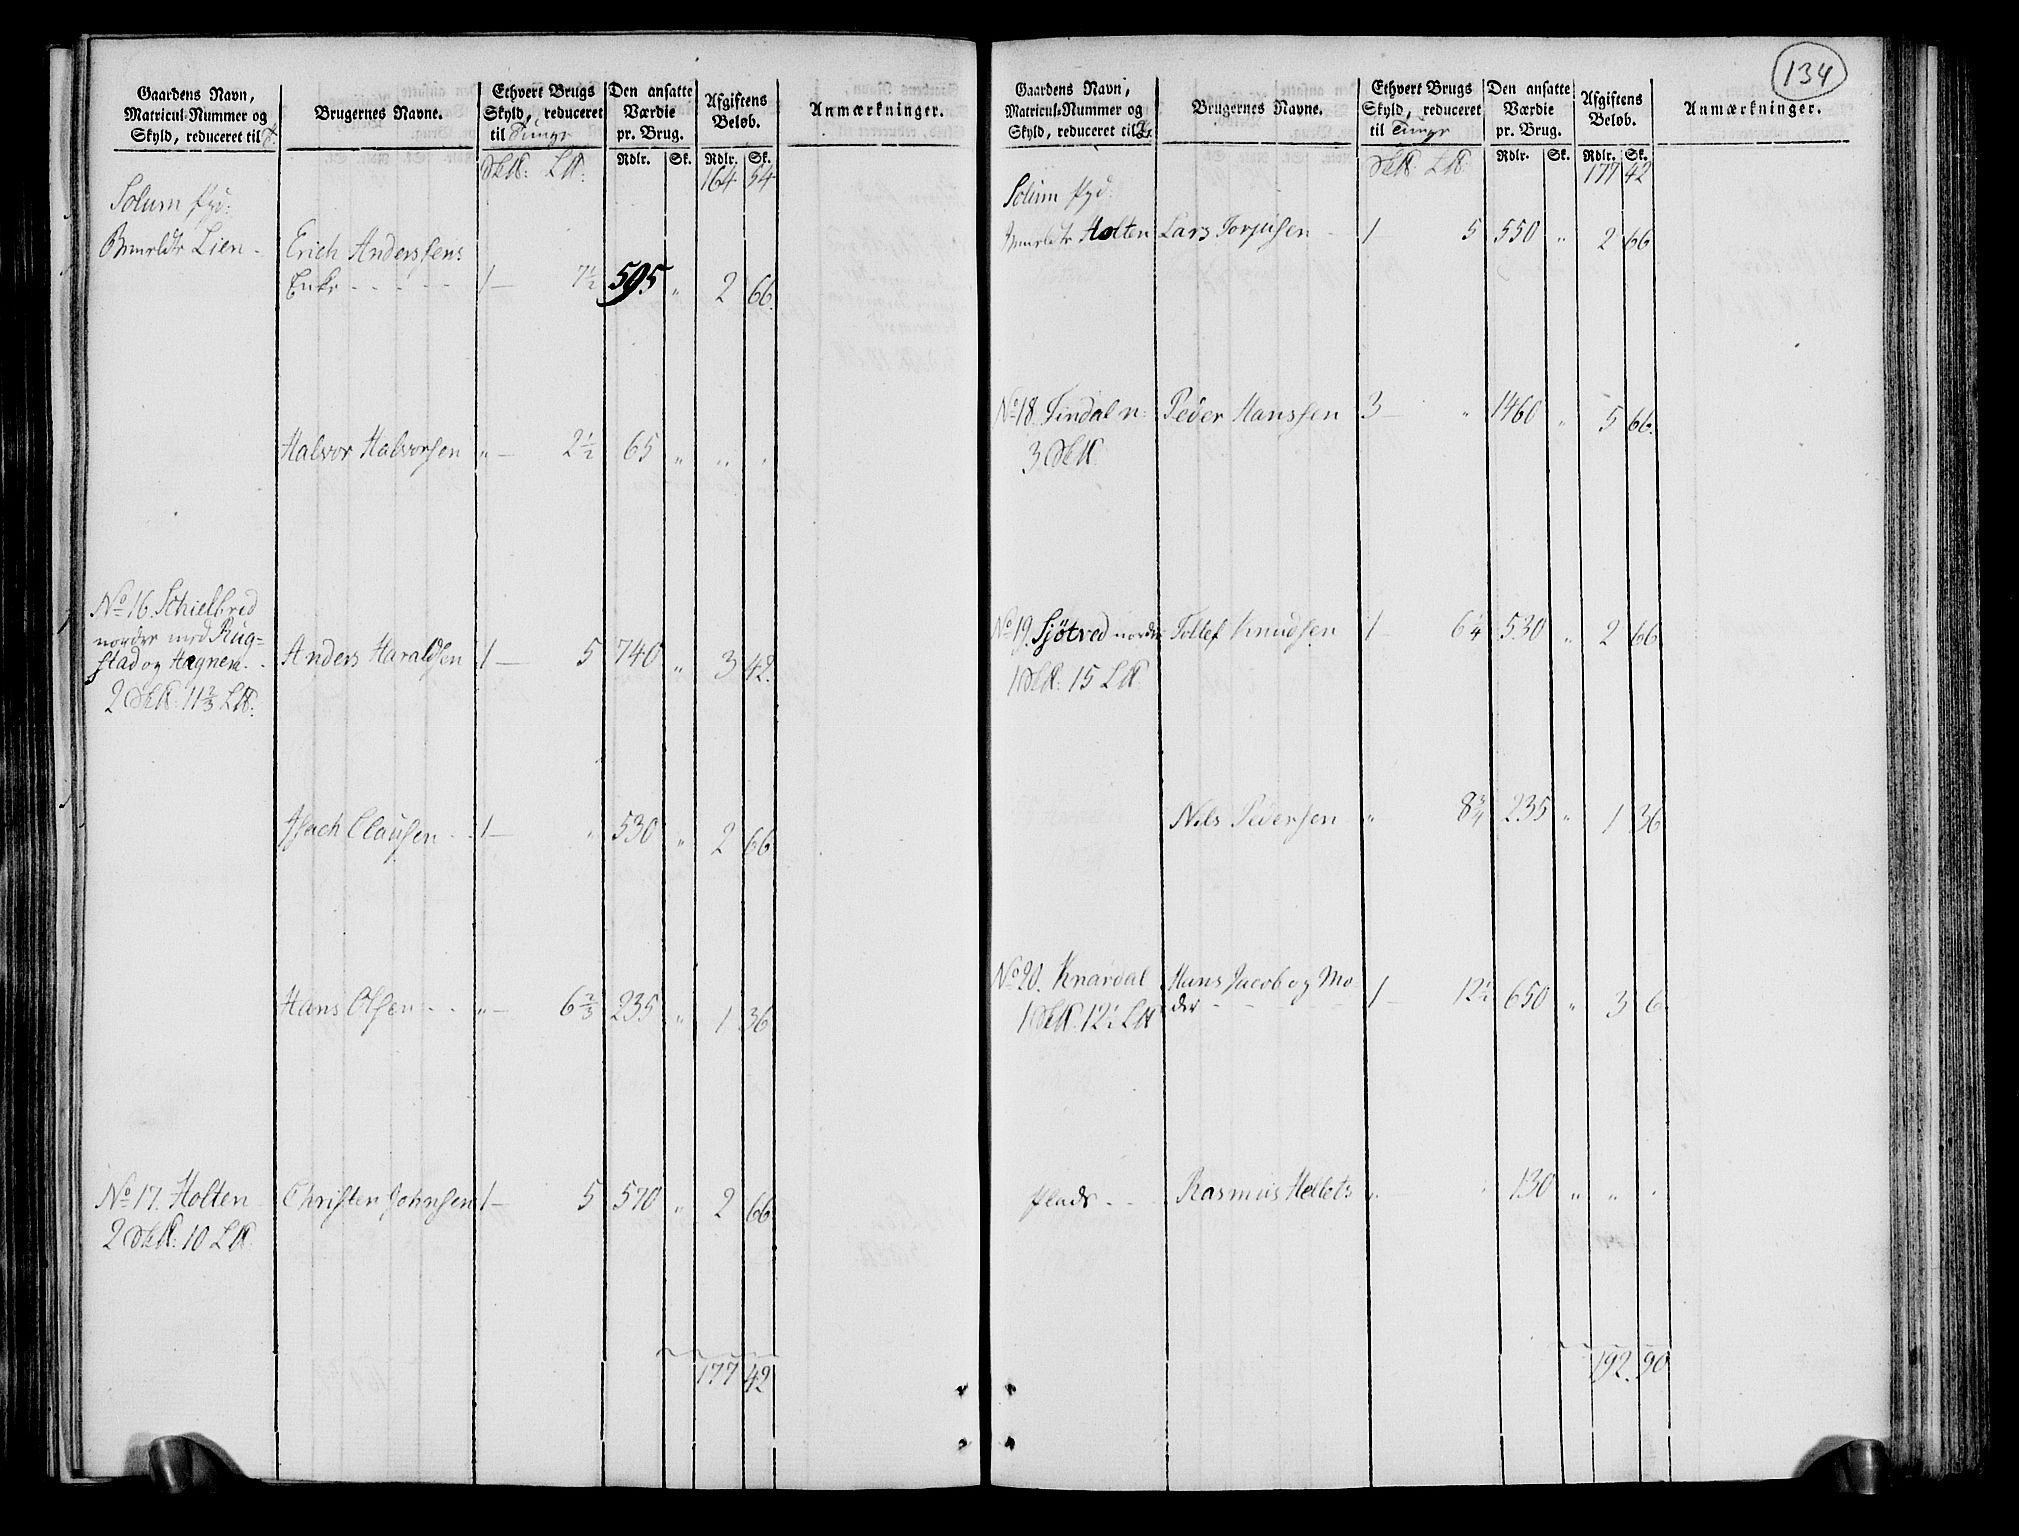 134
Gaardens Navn,
Matricul-Nummer og
Skyld, reduceret til
Brugernes Navne.
Ethvert Brugs
Skyld, reduceret
til Tunge
Den ansatte
Værdie
pr. Brug.
Rdlr. Sk.
Afgiftens
Beløb.
Rdlr. Sk.
Anmærkninger.
164 54
Solum
Lien - Erich Anderssens
Enke - - - - - 1 - 7½ 595 " 2 66.
Halvor Halvorsen " - 2½ 65 " " "
No 16. Schielbred
nordre med Rug-
stad og Hagnem. - Anders Haraldsen 1 - 5 740 " 3 42.
2 11⅔
Isach Clausen - - 1 - " 530 " 2 66
Hans Olsen - - " - 6⅔ 235 " 1 36
No 17. Holten Christen Johnsen 1 - 5 570 " 2 66
2 10
177 42
Gaardens Navn,
Matricul-Nummer og
Skyld, reduceret til
Brugernes Navne.
Ethvert Brugs
Skyld, reduceret
til Tunge
Den ansatte
Værdie
pr. Brug.
Rdlr. Sk.
Afgiftens
Beløb.
Rdlr. Sk.
Anmærkninger.
177 42
Solum
Holten Lars Torjusen - 1 5 550 " 2 66
No 18. Findal n: Peder Hanssen 3 - " 1460 " 5 66.
3
No 19. Sjötved nordre Tollef Knudsen 1 - 6¼ 530 " 2 66
1 15
Nils Pedersen " 8¾ 235 " 1 36
No 20. Knardal Hans Jacob og Mo-
der - - - 1 - 12½ 650 " 3 6
1 12½
Plads - - Rasmus " - " 130 " " "
192. 90